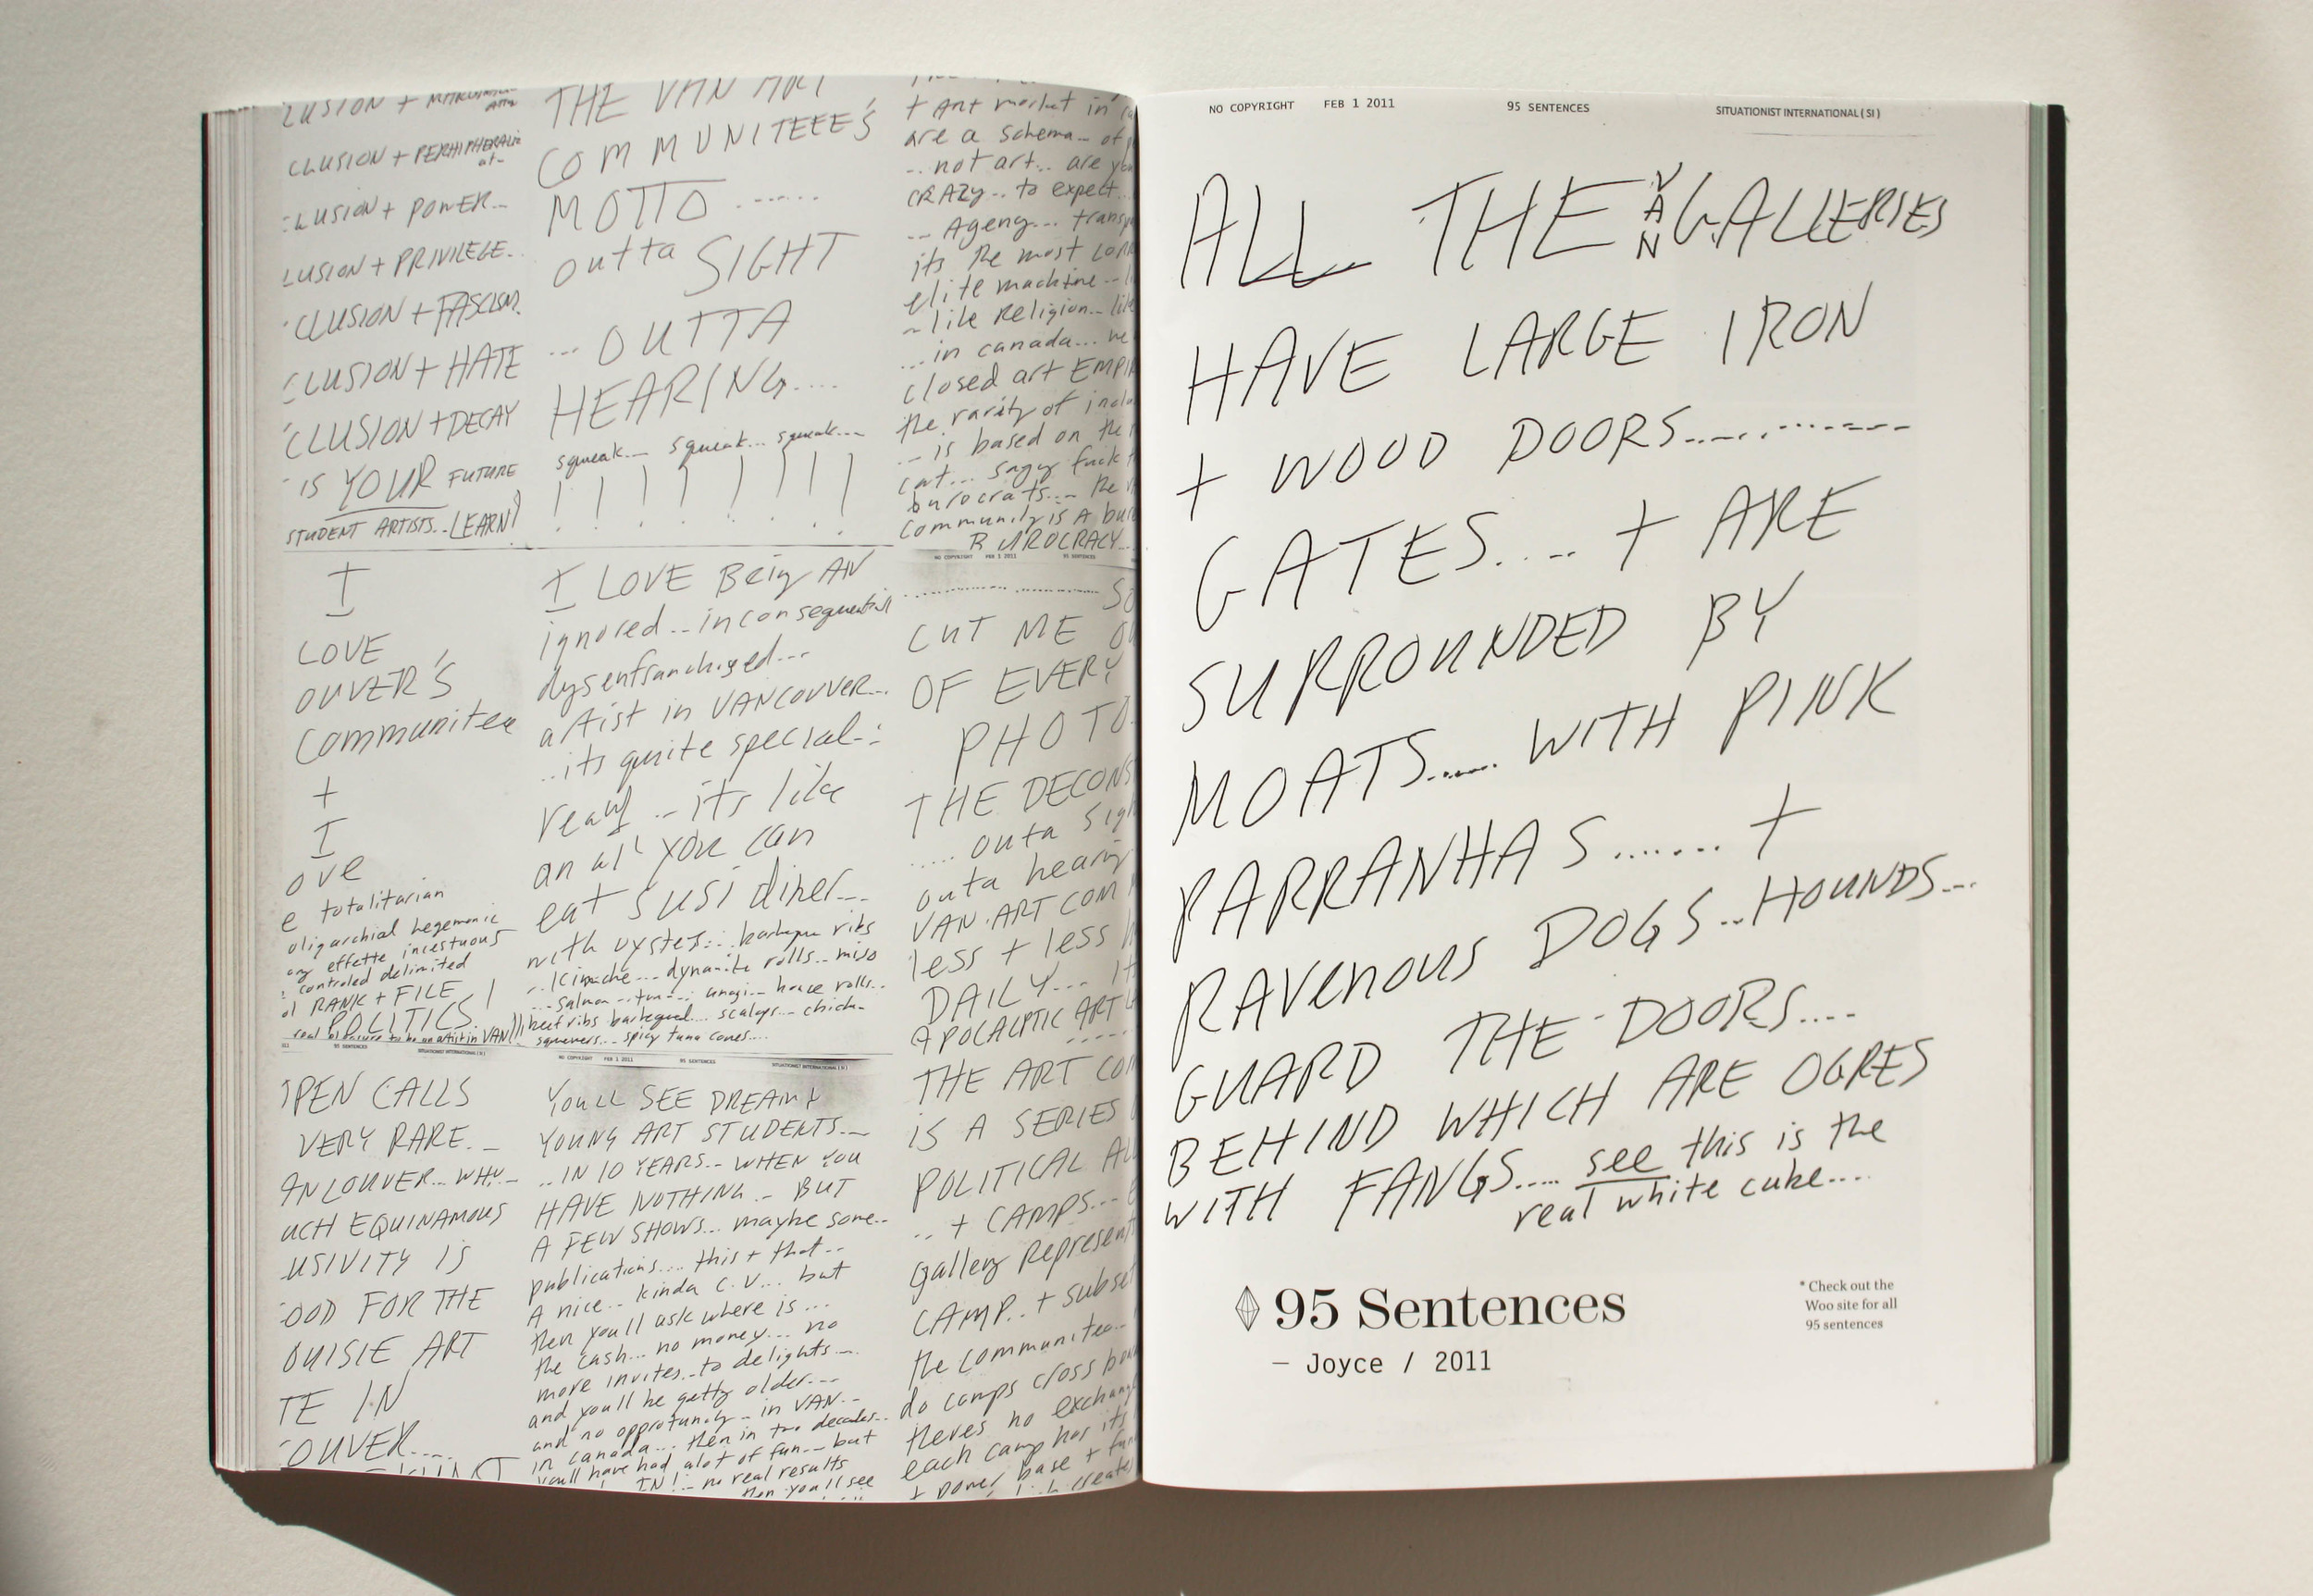 LUSION +
CLUSION + PERHIPHERALIZ
at-
LUSION + POWER...
LUSION + PRIVILEGE..
CLUSION + FASCISM.
CLUSION + HATE
CLUSION + DECAY
IS YOUR FUTURE
STUDENT ARTISTS.. LEARN!
THE VAN ART
COMMUNITEEE'S
MOTTO ......
outta SIGHT
... OUTTA
HEARING....
squeak... squeak... squeak...
! ! ! ! ! ! !
+ Art market in
are a schema... of
... not art... are
CRAZY... to expect
... Agency... trans
its the most
elite machine...
~ like Religion...
... in canada...
closed art EMPI
the rarity of inclu
... is based on the
cat... say fuck
burocrats... the
community is A bur
BUROCRACY...
NO COPYRIGHT FEB 1 2011 95 SENTENCES
I
LOVE
OUVER'S
Communitee
+
I
ove
e totalitarian
oligarchial hegemonic
effette incestuous
controled delimited
RANK + FILE
POLITICS!
real pleasure to be an artist in VAN!!
95 SENTENCES SITUATIONIST INTERNATIONAL (SI)
I LOVE Being AN
ignored.. inconsequential
dysenfranchised...
artist in VANCOUVER...
...its quite special..
really... its like
an all you can
eat susi diner...
with oysters... barbeque ribs
.. Kimache... dynamite rolls.. miso
... salmon... tuna... unagi... house rolls..
beef ribs barbequed... scalops... chicken
squewers... spicy tuna cones....
NO COPYRIGHT FEB 1 2011 95 SENTENCES SITUATIONIST INTERNATIONAL (SI)
SO
CUT ME OU
OF EVERY
PHOTO
THE DECONS
..... outa sigh
outa hearin
VAN. ART COM
less + less
DAILY... it
APOCALPTIC ART
PEN CALLS
VERY RARE...
ANCOUVER... WHY...
UCH EQUINAMOUS
USIVITY IS
OOD FOR THE
OUISIE ART
TE IN
OUVER....
YOULL SEE DREAMY
YOUNG ART STUDENTS...
.. IN 10 YEARS.. WHEN YOU
HAVE NOTHING... BUT
A FEW SHOWS... maybe some..
publications.... this + that..
A nice.. kinda C.V... but
then you'll ask where is...
the cash... no money... no
more invites.. to delights...
and you'll be getty older...
and no opprotunity - in VAN...
in canada... then in two decades..
youll have had alot of fun... but
no real results
then you'll see
THE ART COM
IS A SERIES
POLITICAL AL
.. + CAMPS...
gallery Represent
CAMP.. + subset
the communitee..
do camps cross bou
theres no exchang
each camp has its
+ power base + fun
create
NO COPYRIGHT FEB 1 2011 95 SENTENCES SITUATIONIST INTERNATIONAL (SI)
ALL THE VAN GALLERIES
HAVE LARGE IRON
+ WOOD DOORS..............
GATES.... + ARE
SURROUNDED BY
MOATS...... WITH PINK
PARRANHAS ....... +
RAVENOUS DOGS...HOUNDS...
GUARD THE DOORS....
BEHIND WHICH ARE OGRES
WITH FANGS..... see this is the
real white cube....
95 Sentences
— Joyce / 2011
* Check out the
Woo site for all
95 sentences